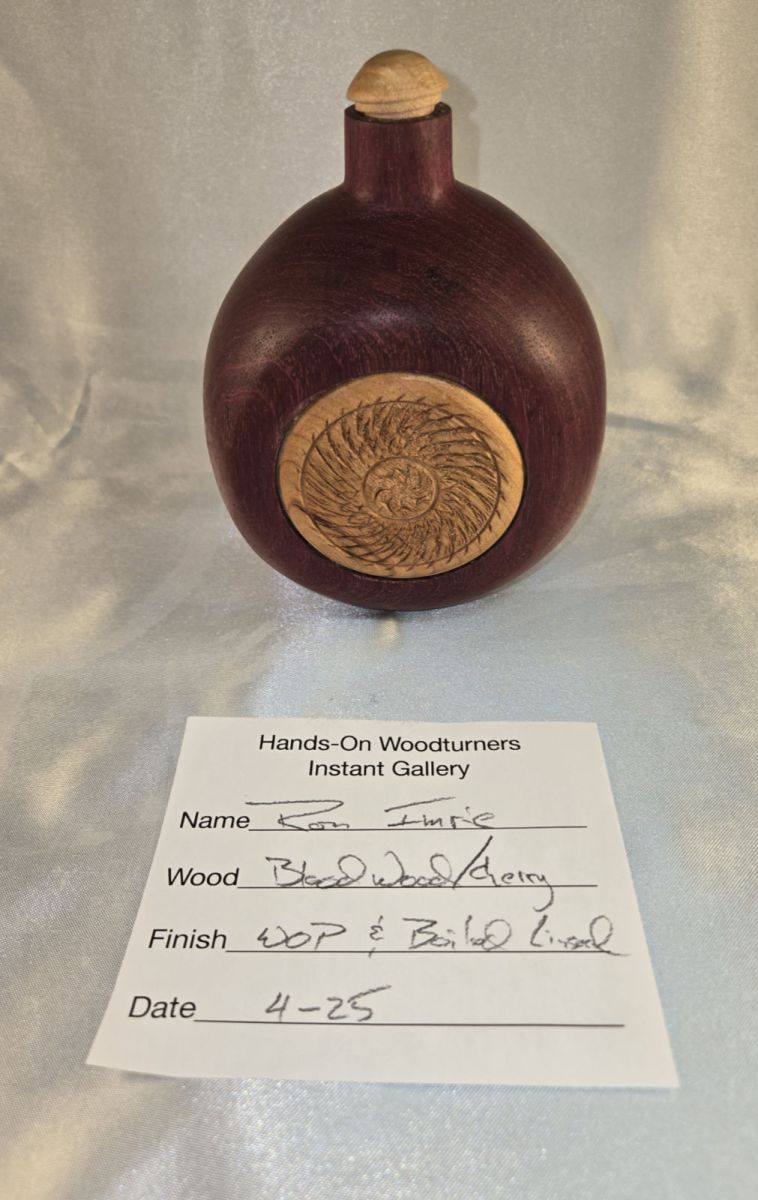 Hands-On Woodturners
Instant Gallery
Name Ron Imrie
Wood Bloodwood/Cherry
Finish WOP & Boiled Linseed
Date 4-25